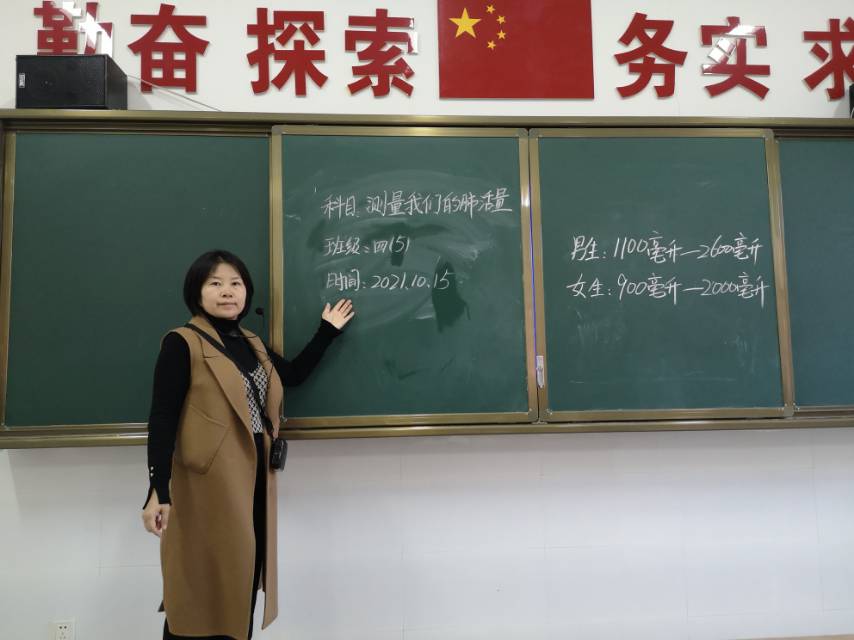 勤奋 探索 务实 求
科目:测量我们的肺活量
班级:四151
时间:2021.10.15
男生:1100毫升—2600毫升
女生:900毫升—2000毫升